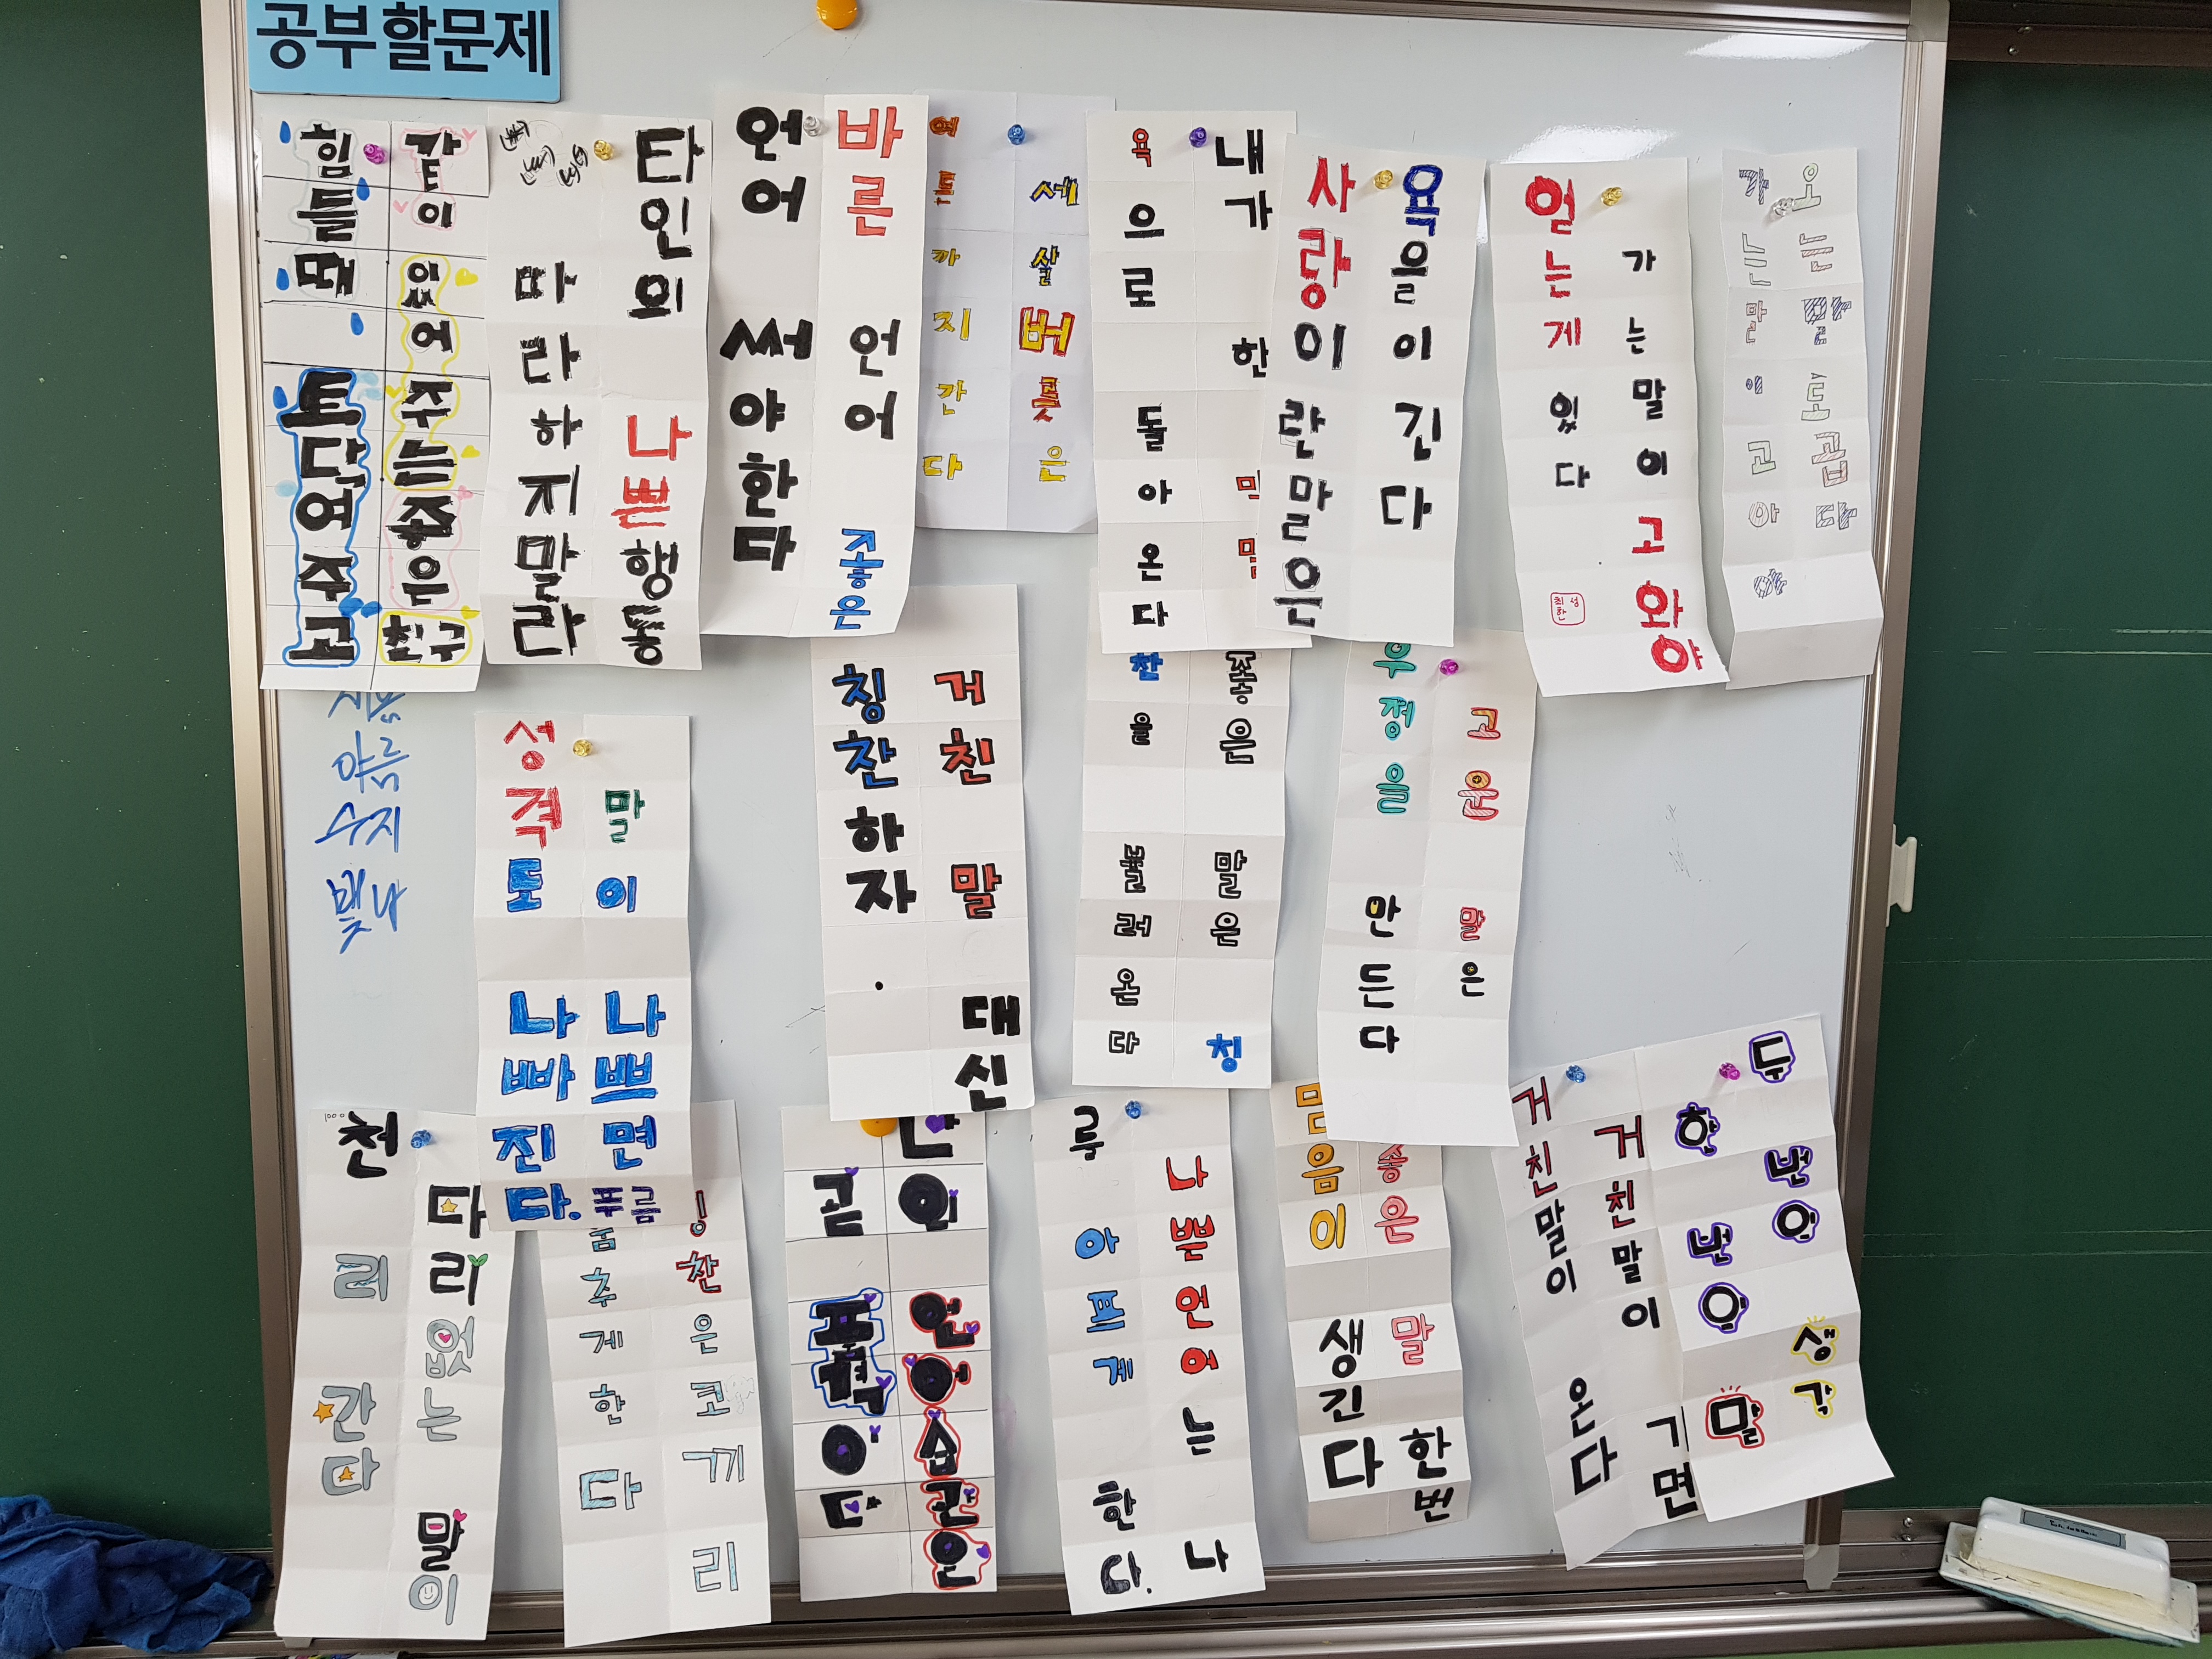 공부할문제
같이 있어 주는 좋은 친구
힘들때 토다여주고
타인의 나쁜행동
따라하지말라
바른 언어 좋은
언어 써야한다
세살버릇은
여든까지간다
내가 한
욕으로 돌아온다
욕을이긴다
사랑이란말은
가는말이고와야
얻는게 있다
최성한
오는말도곱다
가는말이고아야
말이 나쁘면
성격도 나빠진다.
푸름
거친 말 대신
칭찬하자.
좋은 말은 칭
찬을 불러온다
고운 말은
우정을 만든다
아름
수지
빛나
다리없는 말이
천 리 간다
1000
찬은코끼리
춤추게한다
인 언어습관은
곧 폭력이다
나쁜언어는 나
를 아프게 한다.
좋은 말 한번
마음이 생긴다
두번 생각
한번 말
거친말이 기면
거친말이 온다